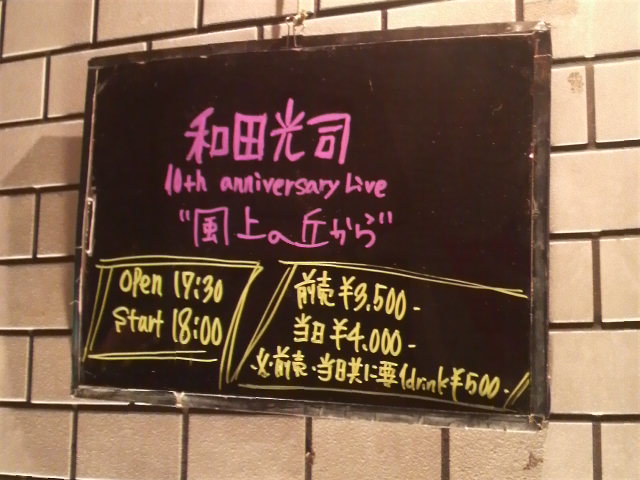 和田光司
10th anniversary Live
"風上の丘から"
open 17:30
start 18:00
前売 ¥3,500-
当日 ¥4,000-
※前売・当日共に要1drink¥500-